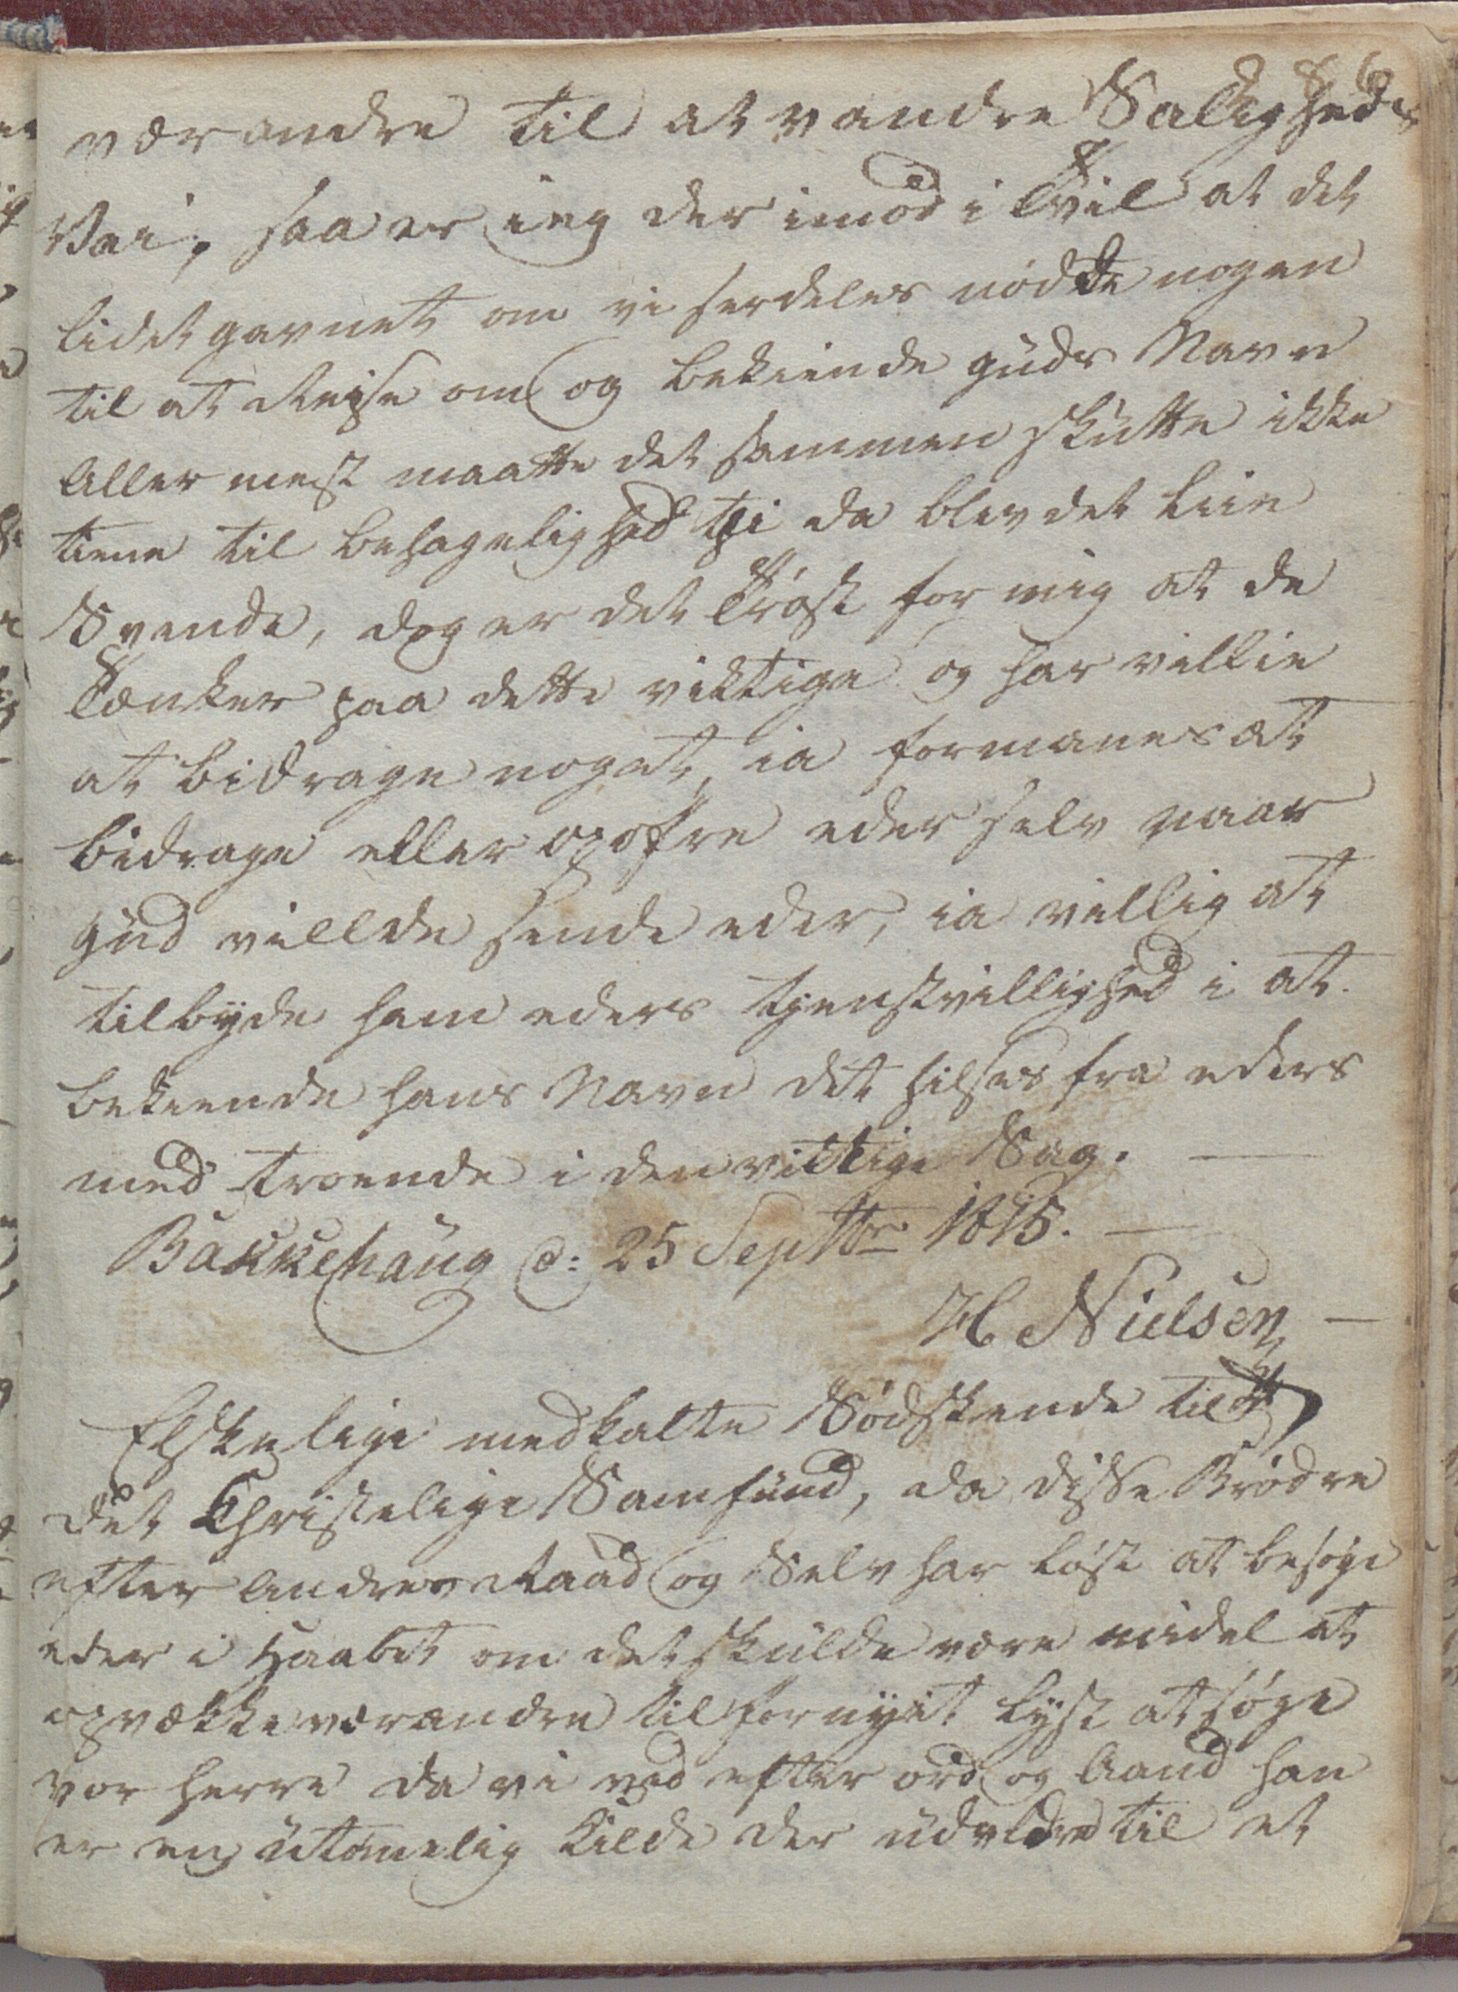 værandre til at vandre Saligheds
Vai, saa er ieg der imod i Tvil at det
lidet gavnet om vi serdeles nødde nogen
til at Reise om og bekiende guds Navn
Aller mest maatte det sammen skutte ikke
tiene til behagelighed thi da blev det leie
Svende, dog er det Trøst for mig at de
Tænker paa dette viktige og har villie
at bidrage noget, ia formanes at
bidrage eller opofre eder selv naar
gud villde sende eder, ia villig at
tilbyde ham eders tjenstvillighed i at
bekiende hans Navn det hilses fra eders
med troende i den viktige Sag.
Bakkehaug d: 25 Septbr 1815.
H Nielsen
Elskelige medkalte Södskende til
det Christelige Samfund, da disse Brödre
efter Andres Raad og Selv har løst at besøge
eder i Haabet om det skulde være midel at
opvække værandre til fornyet lyst at søge
vor Herre da vi ved efter ord og Aand han
er en utömelig Kilde der til et